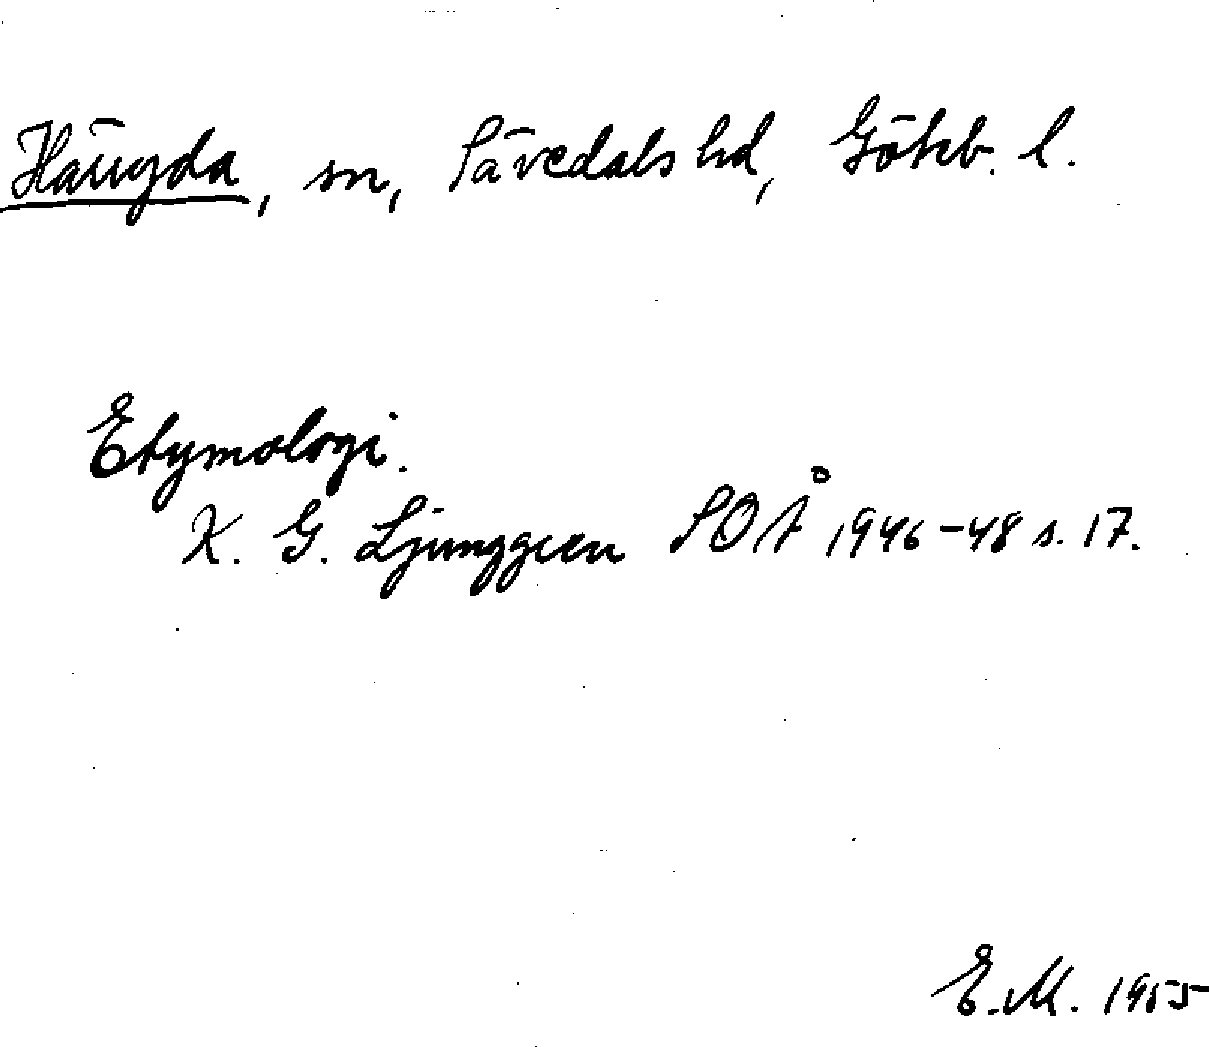 Härryda, sn, Sävedals hd, Göteb. l.
Etymologi.
K. G. Ljunggren SOÅ 1946-48 s. 17.
E.M. 1955